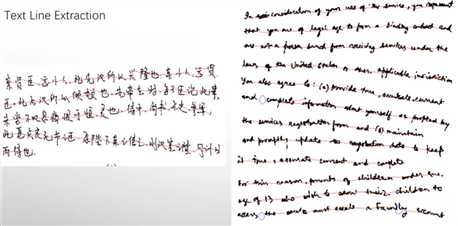 Text Line Extraction
亲贤臣,远小人,此先汉所以兴隆也,亲小人,远贤
臣,此后汉所以倾颓也.先帝在时,每与臣论此事,
未尝不叹息痛恨于桓灵也.侍中,尚书,长史,参军,
此悉贞良死节之臣,愿陛下亲之信之,则汉室之隆,可计日
而待也.
In consideration of your use of the service, you represent
that you are of legal age to form a binding contract and
are not a person barred from receiving services under the
laws of the United States or other applicable jurisdiction
You also agree to: (a) provide true, accurate, current
and complete information about yourself as prompted by
the service's registration form and (b) maintain
and promptly update the registration data to keep
it true, accurate current and complete
For this reason, parents of children under the
age of 13 who wish to allow their children to
access the service must create a family account